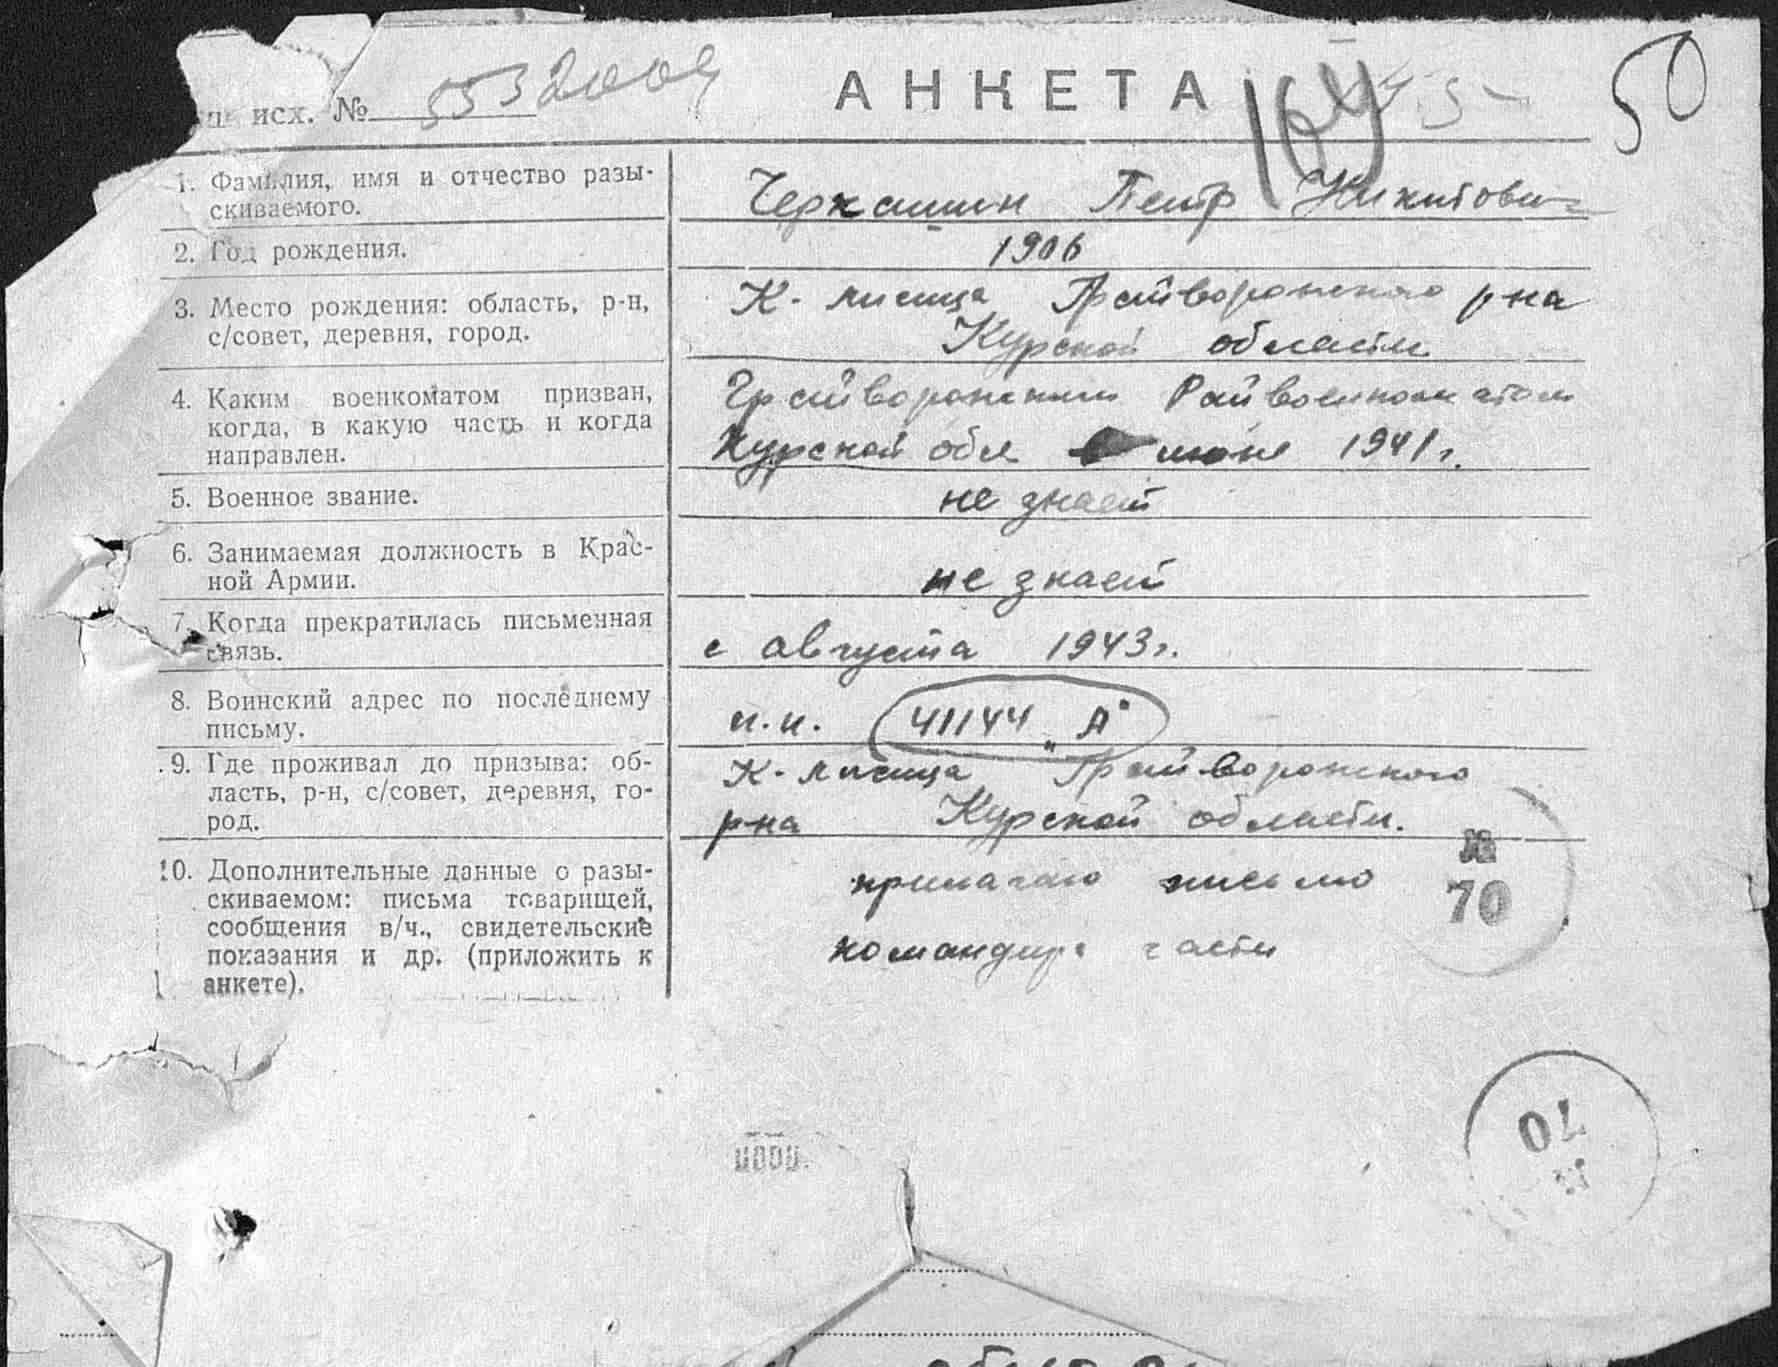 исх. №
АНКЕТА
50
1. Фамилия, имя и отчество разы-
скиваемого.
Черкашин Петр Никитович
2. Год рождения.
1906
3. Место рождения: область, р-н,
с/совет, деревня, город.
К-лисица Грайворонского р-на
Курской области
4. Каким военкоматом призван,
когда, в какую часть и когда
направлен.
Грайворонским Райвоенкоматом
Курской обл в июне 1941 г.
5. Военное звание.
не знает
6. Занимаемая должность в Крас-
ной Армии.
не знает
7. Когда прекратилась письменная
связь.
с августа 1943 г.
8. Воинский адрес по последнему
письму.
п.п. 41144 „А"
9. Где проживал до призыва: об-
ласть, р-н, с/совет, деревня, го-
род.
К-лисица Грайворонского
р-на Курской области.
10. Дополнительные данные о разы-
скиваемом: письма товарищей,
сообщения в/ч., свидетельские
показания и др. (приложить к
анкете).
прилагаю письмо
командира части
№
70
70